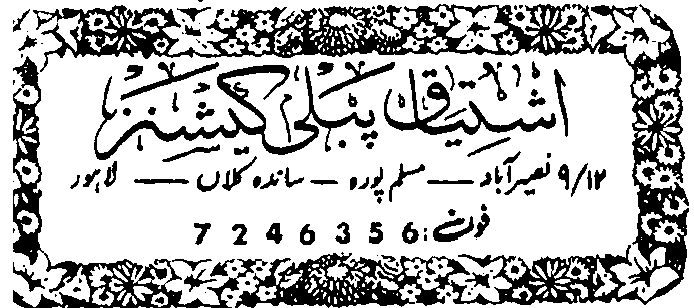 اشتیاق پبلی کیشنز
۹/۱۲ نصیر آباد — مسلم پورہ — ساندہ کلاں — لاہور
فون: 7 2 4 6 3 5 6